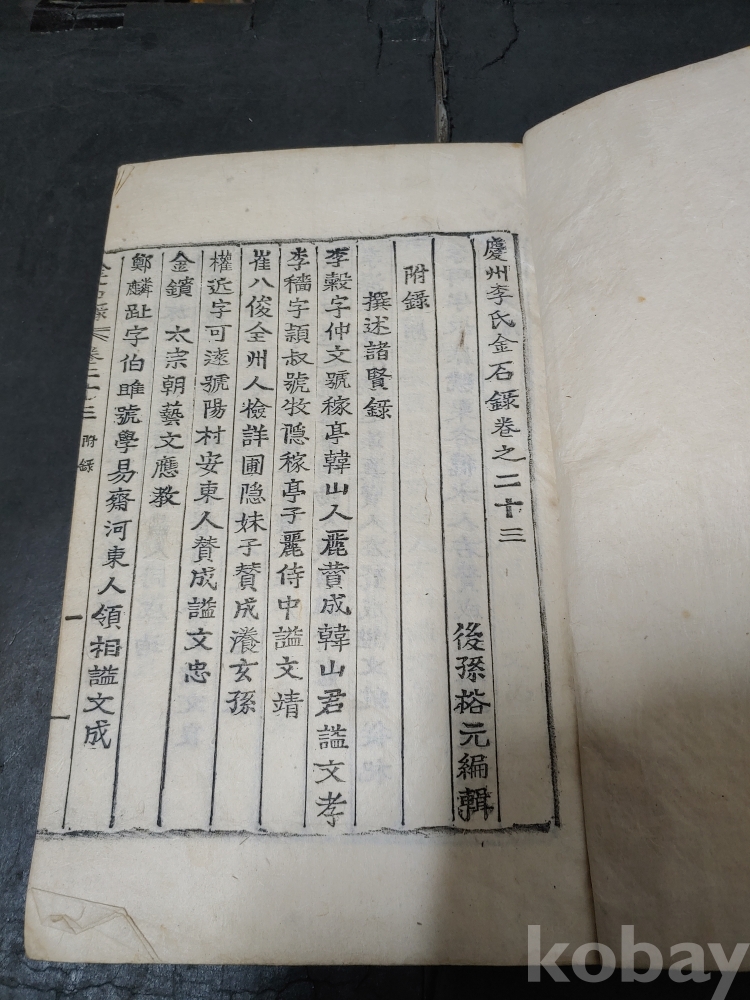 慶州李氏金石錄卷之二十三
後孫裕元編輯
附錄
撰述諸賢錄
李糓字仲文號稼亭韓山人麗賛成韓山君謚文孝
李穡字頴叔號牧隐稼亭子麗侍中謚文靖
崔八俊全州人檢詳圃隐妹子賛成濱玄孫
權近字可逺號陽村安東人賛成謚文忠
金鑌太宗朝藝文應教
鄭麟趾字伯雎號學易齋河東人領相謚文成
卷二十三 附錄
kobay